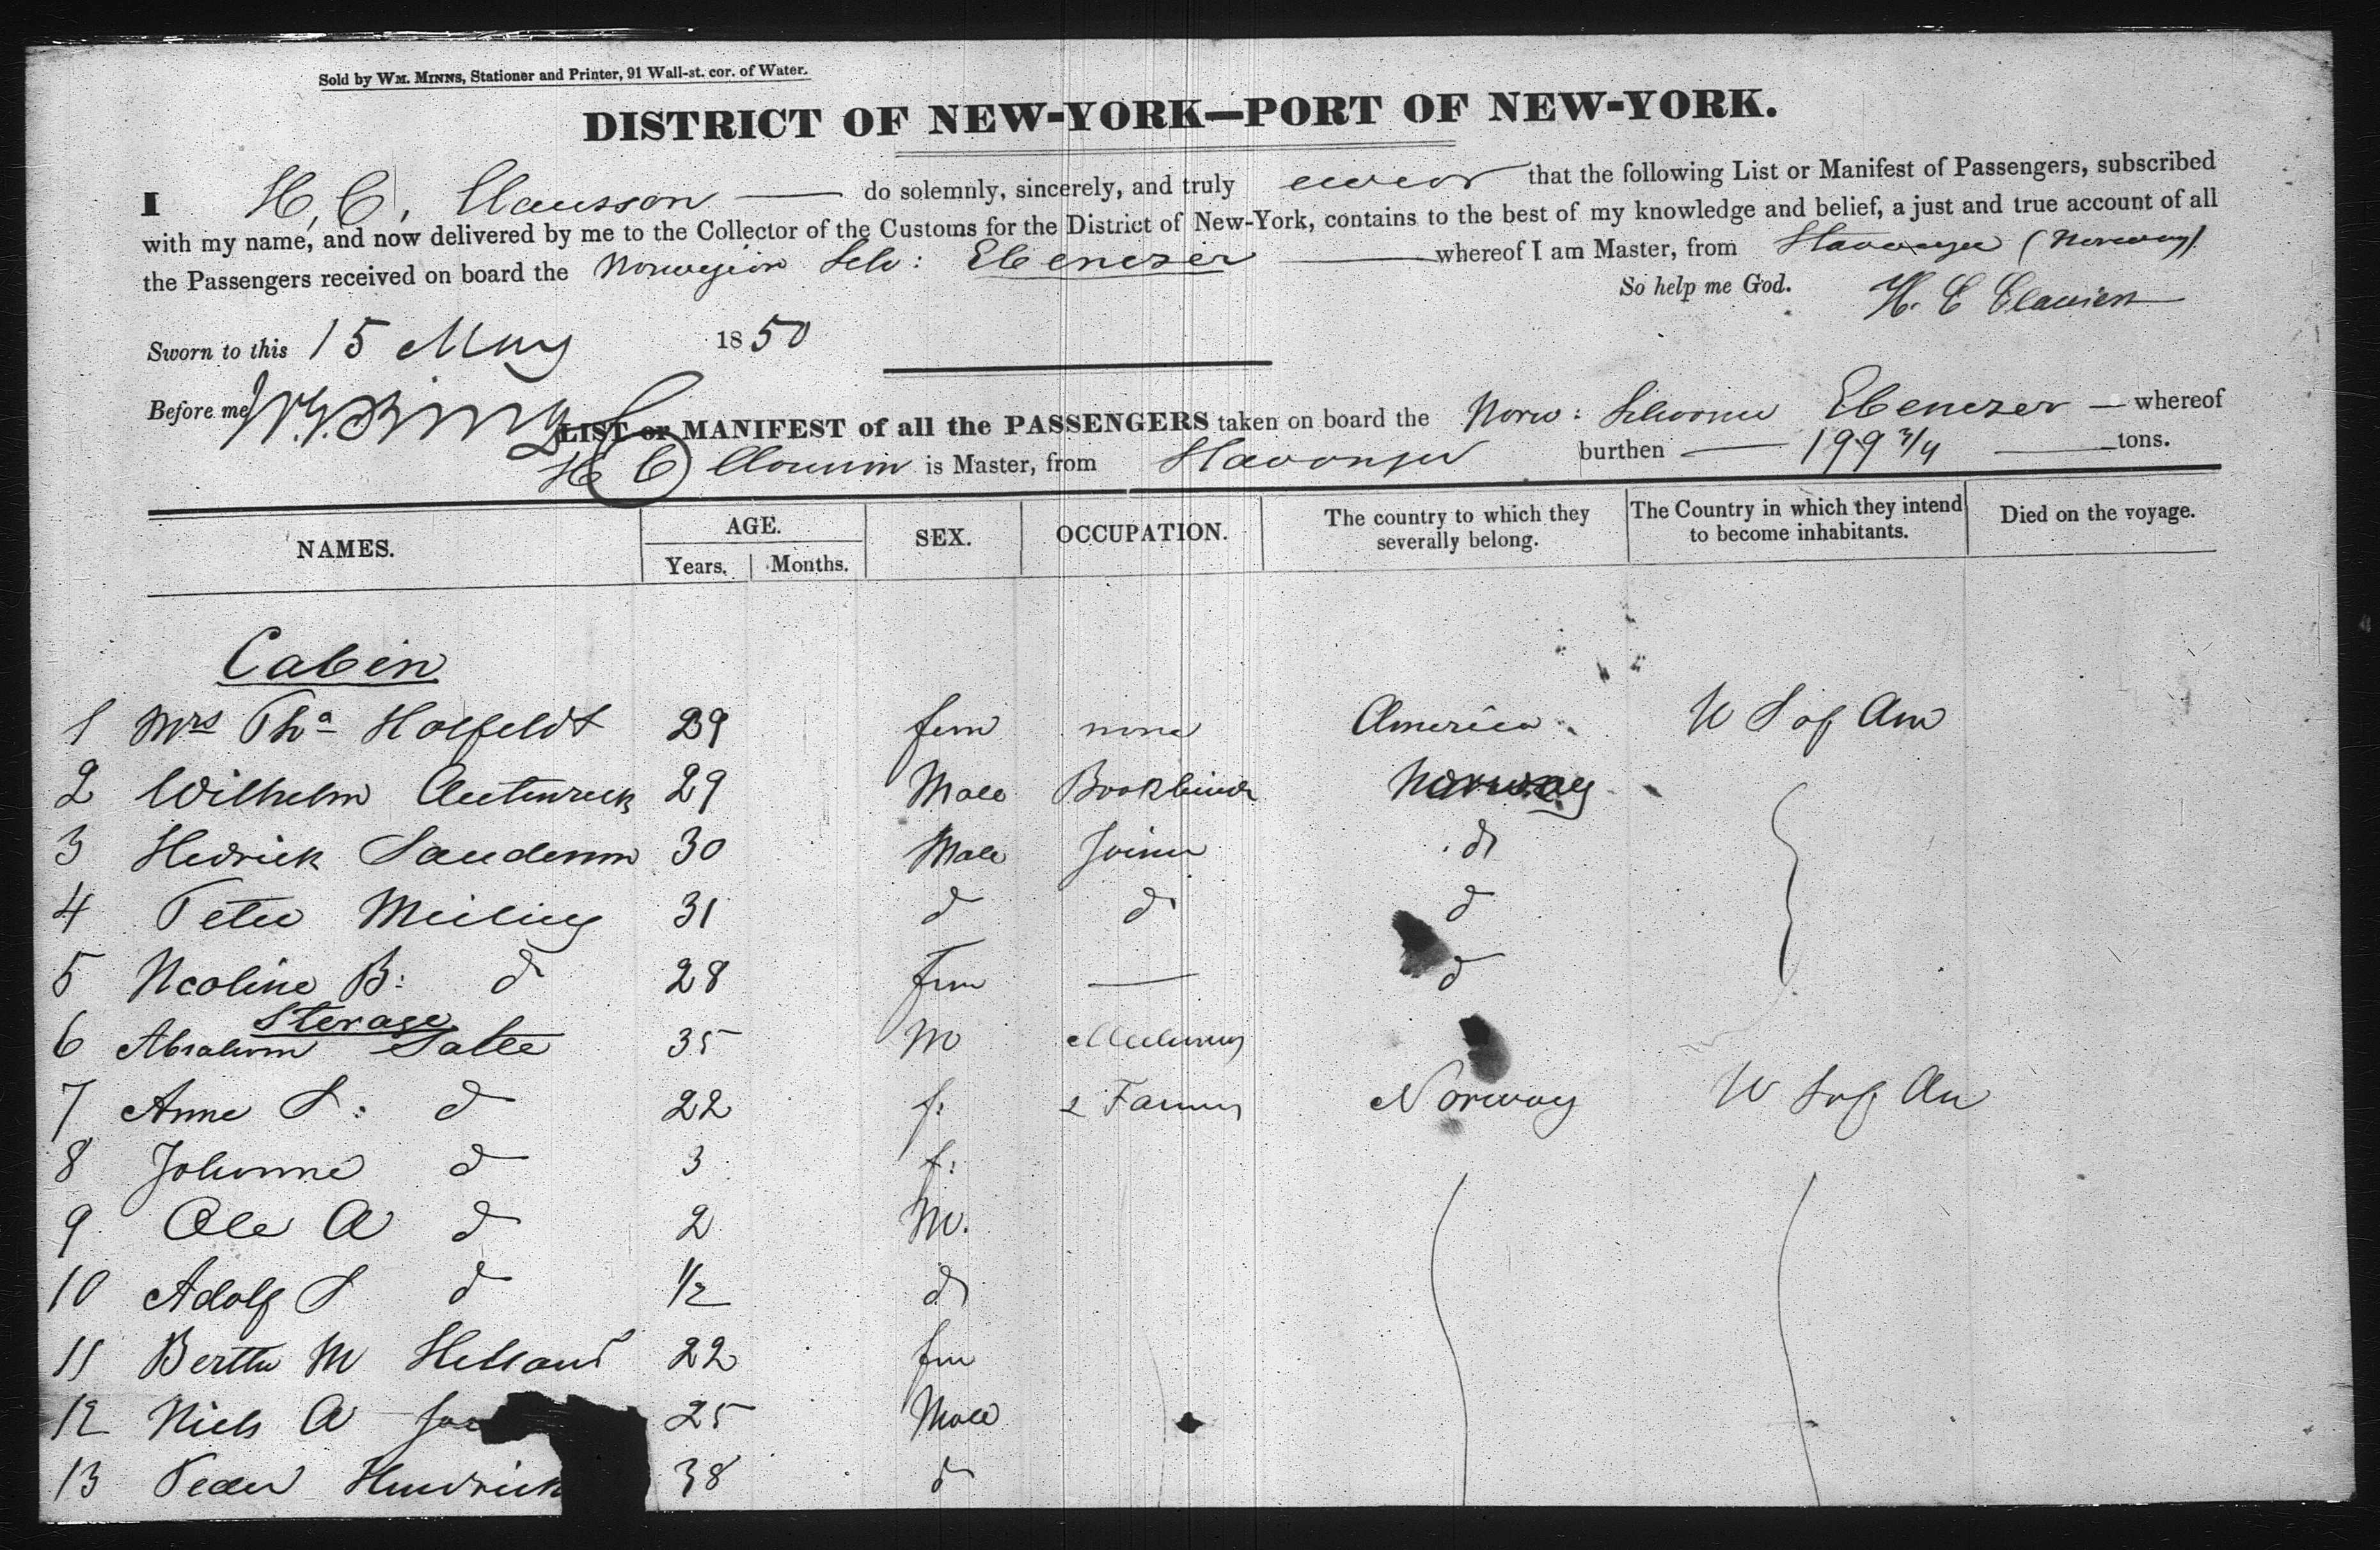 Sold by WM. MINNS, Stationer and Printer, 91 Wall-st. cor. of Water.
DISTRICT OF NEW-YORK—PORT OF NEW-YORK.
I H. C. Clausson — do solemnly, sincerely, and truly swear that the following List or Manifest of Passengers, subscribed
with my name, and now delivered by me to the Collector of the Customs for the District of New-York, contains to the best of my knowledge and belief, a just and true account of all
the Passengers received on board the Norwegian Sch: Ebenezer — whereof I am Master, from Stavanger (Norway)
So help me God. H. C Clausen
Sworn to this 15 May 1850
Before me
LIST or MANIFEST of all the PASSENGERS taken on board the Norw: Schooner Ebenezer — whereof
H C is Master, from Stavanger burthen — 199 3/4 — tons.
NAMES. AGE. Years. Months. SEX. OCCUPATION. The country to which they severally belong. The Country in which they intend to become inhabitants. Died on the voyage.
Cabin
1 Mrs Tha Holfeldt 29 fem none America U S of Am
2 Wilhelm 29 Male Bookbinder Norway
3 Hedrick 30 Male Joiner do
4 Peter 31 d d d
5 Ncoline B: d 28 Fem — d
Sterage
6 Abraham 35 M
7 Anne S: d 22 f: Farmer Norway U S of Am
8 Johanne d 3 f:
9 Ole A d 2 M.
10 Adolf S d 1/2 do
11 Bertha M Helland 22 fem
12 Niels A 25 Male
13 Peder Hendrick 38 d